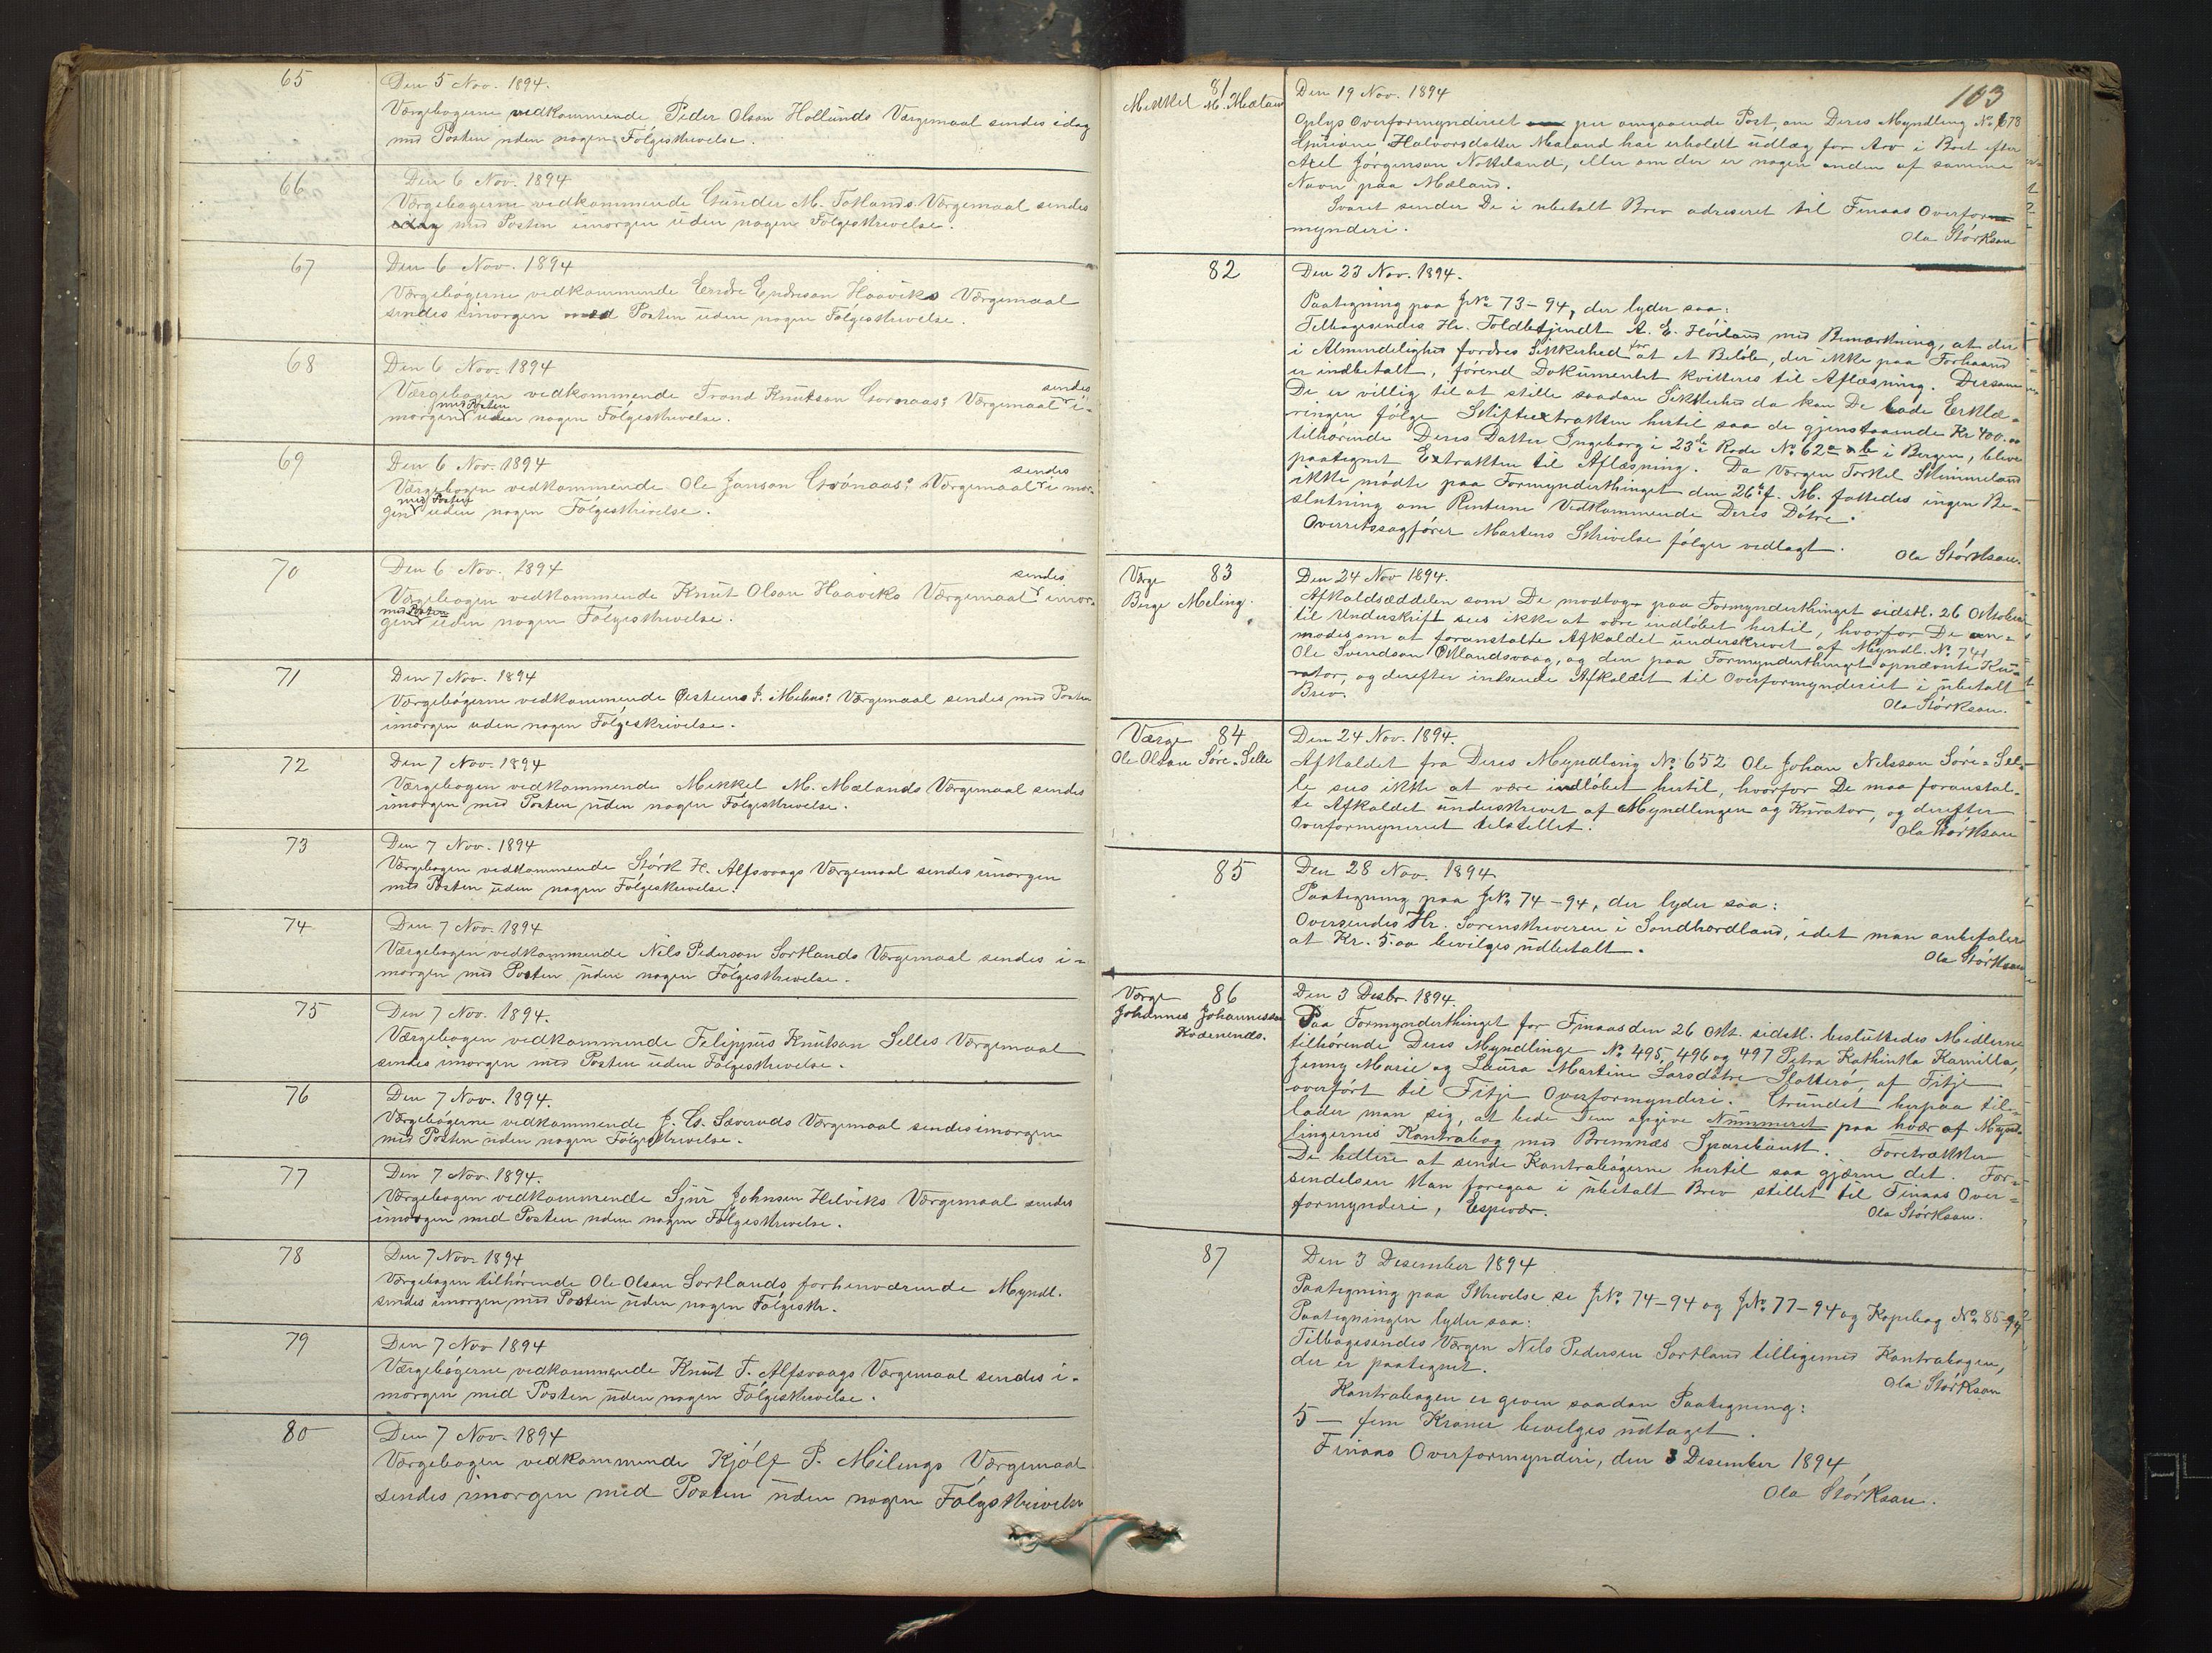 65
Den 5 Nov. 1894.
Værgebøgerne vedkommende Peder Olson Hollunds Værgemaal sendes idag
med Posten uden nogen Følgeskrivelse.
66
Den 6 Nov. 1894
Værgebøgerne vedkommende Gunder M. Totlands Værgemaal sendes
idag med Posten imorgen uden nogen Følgeskrivelse.
67
Den 6 Nov. 1894
Værgebøgerne vedkommende Endre Endreson Haaviks Værgemaal
sendes imorgen med Posten uden nogen Følgeskrivelse.
68
Den 6 Nov. 1894
Værgebogen vedkommende Trond Knutson Gornaas: Værgemaal sendes i-
morgen med Posten uden nogen Følgeskrivelse.
69
Den 6 Nov. 1894
Værgebogen vedkommende Ole Janson Grønaas: Værgemaal sendes i mor-
gen med Posten uden nogen Følgeskrivelse.
70
Den 6 Nov. 1894
Værgebogen vedkommende Knut Olson Haaviks Værgemaal sendes imor-
gen med Posten uden nogen Følgeskrivelse.
71
Den 7 Nov. 1894
Værgebøgerne vedkommende Østeins J. Mehus: Værgemaal sendes med Posten
imorgen uden nogen Følgeskrivelse.
72
Den 7 Nov. 1894
Værgebogen vedkommende Mikkel M. Mælands Værgemaal sendes
imorgen med Posten uden nogen Følgeskrivelse.
73
Den 7 Nov. 1894
Værgebogen vedkommende Størk H. Alfsvaags Værgemaal sendes imorgen
med Posten uden nogen Følgeskrivelse.
74
Den 7 Nov. 1894
Værgebogen vedkommende Nils Pederson Sortlands Værgemaal sendes i-
morgen med Posten uden nogen Følgeskrivelse.
75
Den 7 Nov. 1894.
Værgebogen vedkommende Filippus Knutson Selles Værgemaal
sendes imorgen med Posten uden Følgeskrivelse.
76
Den 7 Nov. 1894.
Værgebøgerne vedkommende J. G. Sæveruds Værgemaal sendes imorgen
med Posten uden nogen Følgeskrivelse.
77
Den 7 Nov. 1894.
Værgebogen vedkommende Sjur Johnsen Helviks Værgemaal sendes
imorgen med Posten uden nogen Følgeskrivelse.
78
Den 7 Nov. 1894
Værgebogen tilhørende Ole Olson Sortlands forhenværende Myndl.
sendes imorgen med Posten uden nogen Følgeskr.
79
Den 7 Nov 1894
Værgebøgerne vedkommende Knut T. Alfsvaags Værgemaal sendes i-
morgen med Posten uden nogen Følgeskrivelse.
80
Den 7 Nov. 1894
Værgebogen vedkommende Kjølf P. Mælings Værgemaal
sendes imorgen med Posten uden nogen Følgskrivelse
103
81
Mikkel M. Mæland
Den 19 Nov. 1894
Oplys Overformynderiet per omgaaende Post, om Deres Myndling No 678
Guriane Halvorsdatter Mæland har erholdt udlæg for Arv i Boet efter
Axel Jørgenson Notteland, eller om der er nogen anden af samme
Navn paa Mæland.
Svaret sender De i ubetalt Brev adreseret til Finaas Overfor-
mynderi.
Ola Størkson
82
Den 23 Nov. 1894.
Paategning paa J№ 73-94, der lyder saa:
Tilbagesendes Hr. Toldbetjendt A. E. Høiland med Bemærkning, at der
i Almindelighed fordres Sikkerhed for at et Beløb, der ikke paa Forhaand
er indbetalt, førend Dokumentet kvitteres til Aflæsning. Dersom
De er villig til at stille saadan Sikkerhed da kan De lade Erklæ-
ringen følge Skifteextrakten hertil saa de gjenstaaende Kr 400.oo
tilhørende Deres Datter Ingeborg i 23de Rode No 62a & b i Bergen, bliver
paategnet Extrakten til Aflæsning. Da Værgen Torkel Skimmeland
ikke mødte paa Formynderthinget den 26de f. M. fattedes ingen Be-
slutning om Renterne Vedkommende Deres Døtre.
Overretssagfører Martens Skrivelse følger vedlagt.
Ola Størkson.
Værge 83
Berge Meling.
Den 24 Nov 1894.
Afkaldsæddelen som De modtog paa Formynderthinget sidstl. 26 Oktober
til Underskrift sees ikke at være indløbet hertil, hvorfor De an-
modes om at foranstalte Afkaldet underskrevet af Myndl. No 741
Ole Svendson Økslandsvaag, og den paa Formynderthinget opnævnte Ku-
rator, og derefter insende Afkaldet til Overformynderiet i ubetalt
Brev.
Ola Størkson.
Værge 84
Ole Olson Søre-Selle
Den 24 Nov. 1894.
Afkaldet fra Deres Myndling No 652 Ole Johan Nelsson Søre-Sel-
le sees ikke at være indløbet hertil, hvorfor De maa foranstal-
te Afkaldet underskrevet af Myndlingen og Kurator, og derefter
Overformyneriet tilstillet.
Ola Størkson
85
Den 28 Nov. 1894
Paategning paa J№ 74-94, der lyder saa:
Oversendes Hr. Sorenskriveren i Søndhordland, idet man anbefaler
at Kr. 5.oo bevilges udbetalt.
Ola Størkson
Værge 86
Johannes Johannesson
Den 3 Desbr. 1894.
Paa Formynderthinget for Finaas den 26 Okt. sidstl. besluttedes Midlerne
tilhørende Deres Myndlinge No 495, 496 og 497 Petra Kathinka Kamilla,
Jenny Marie og Laura Martine Larsdøtre Slotterø, af Fitje
overført til Fitje Overformynderi. Grundet herpaa til-
lader man sig, at bede Dem opgive Nummeret paa hver af Mynd-
lingernes Kontrabog med Bremnæs Sparebank. Foretrækker
De hellere at sende Kontrabøgerne hertil saa gjærne det. For-
sendelsen kan foregaa i ubetalt Brev stillet til Finaas Over-
formynderi, Espevær.
Ola Størkson.
87
Den 3 Desember 1894
Paategning paa Skrivelse se J№ 74-94 og J№ 77-94 og Kopibog № 85-94
Paategningen lyder saa:
Tilbagesendes Værgen Nils Pedersen Sortland tilligemed Kontrabogen,
der er paategnet.
Ola Størkson
Kontrabogen er given saadan Paategning:
5 — fem Kroner bevilges udtaget.
Finaas Overformynderi, den 3 Desember 1894
Ola Størkson.